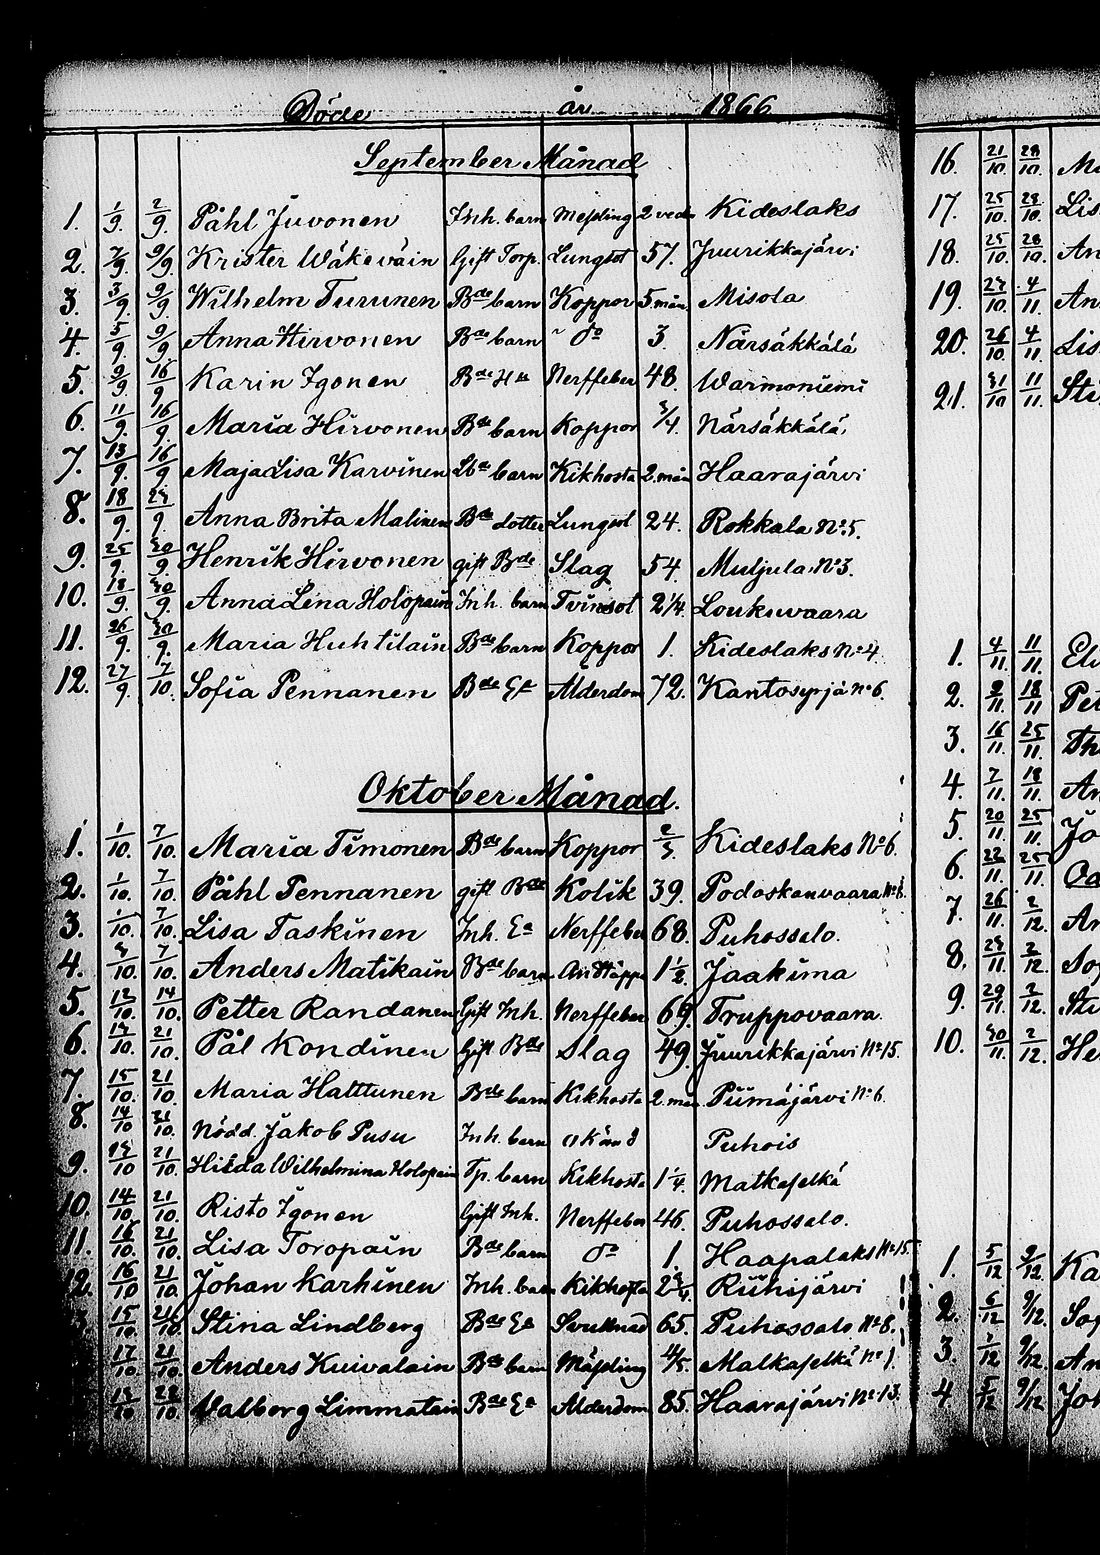 Döde år 1866
September Månad
1. 1/9. 2/9. Påhl Juvonen Inh. barn Messling 2 veck Kideslaks
2. 7/9. 9/9. Krister Wäkeväin Gift Torp. Lungsot 57. Juurikkajärvi
3. 3/9. 9/9. Wilhelm Turunen Bde barn Koppor 5 mån. Misola
4. 5/9. 9/9. Anna Hirvonen Bde barn ~ do 3. Närsäkkälä
5. 9/9. 16/9. Karin Igonen Bde Hu Nerffeber 48. Warmoniemi
6. 11/9. 16/9. Maria Hirvonen Bde barn Koppor 3/4. Närsäkkälä
7. 13/9. 16/9. Maja Lisa Karvinen barn Kikhosta 2. mån Haarajärvi
8. 18/9. 23/9. Anna Brita Malinen Bde dotter Lungsot 24. Rokkala No. 5.
9. 25/9. 30/9. Henrik Hirvonen gift Bde Slag 54. Muljula No 3.
10. 18/9. 30/9. Anna Lena Holopain Inh. barn Tvinsot 2 1/4. Loukuvaara
11. 26/9. 30/9. Maria Huhtilain Bde barn Koppor 1. Kideslaks No 4.
12. 27/9. 7/10. Sofia Pennanen Bde Ea Alderdom 72. Kantosyrjä No 6.
Oktober Månad.
1. 1/10. 7/10. Maria Timonen Bde barn Koppor Kideslaks No 6.
2. 1/10. 7/10. Påhl Pennanen gift Bde Kolik 39. Podoskanvaara No
3. 1/10. 7/10. Lisa Taskinen Inh. Ea Nerffeber 68. Puhossalo.
4. 3/10. 7/10. Anders Matikain Bde barn Andtäppa 1 1/2. Jaakima
5. 12/10. 14/10. Petter Randanen Gift Inh. Nerffeber 69. Truppovaara.
6. 21/10. Pål Kondinen Gift Bde Slag 49. Juurikkajärvi No 15.
7. 15/10. 21/10. Maria Hattunen Bde barn Kikhosta 2. mån. Piimäjärvi No 6.
8. 14/10 21/10. Nödd. Jakob Pusu Inh. barn Okänd Puhois
9. 13/10 21/10. Hilda Wilhelmina Holopain Tp. barn Kikhosta 1 1/4. Matkaselkä
10. 14/10. 21/10. Risto Igonen Gift Inh. Nerffeber 46. Puhossalo.
11. 16/10. 21/10. Lisa Toropain Bde barn do 1. Haapalaks No 15.
12. 16/10 21/10. Johan Karhinen Inh. barn Kikhosta 2 3/4. Riihijärvi
15/10. 21/10 Stina Lindberg Bde Ea Svullnad 65. Puhossalo No 8.
17/10 21/10. Anders Kuivalain Bde barn Mässling 4/5. Matkaselkä No 1.
22/10. Valborg Limmatain Bde Ea Alderdom 85. Haarajärvi No 13.
16. 21/10. 28/10.
17. 25/10. 28/10. Lis
18. 25/10. 28/10. An
19. 4/11. An
20. 26/10. 4/11. Lis
21. 31/10 11/11. Sti
1. 4/11. 11/11.
2. 9/11. 18/11 Pet
3. 16/11. 25/11. Th
4. 7/11. 18/11. An
5. 20/11. 25/11. Jo
6. 22/11. 25/11.
7. 26/11. 2/12. An
8. 2/12. Sop
9. 29/11. 2/12. Sti
10. 30/11. 2/12. He
1. 5/12 9/12. Ka
2. 6/12 9/12. Sop
3. 1/12 9/12. An
4. 5/12 9/12. Joh